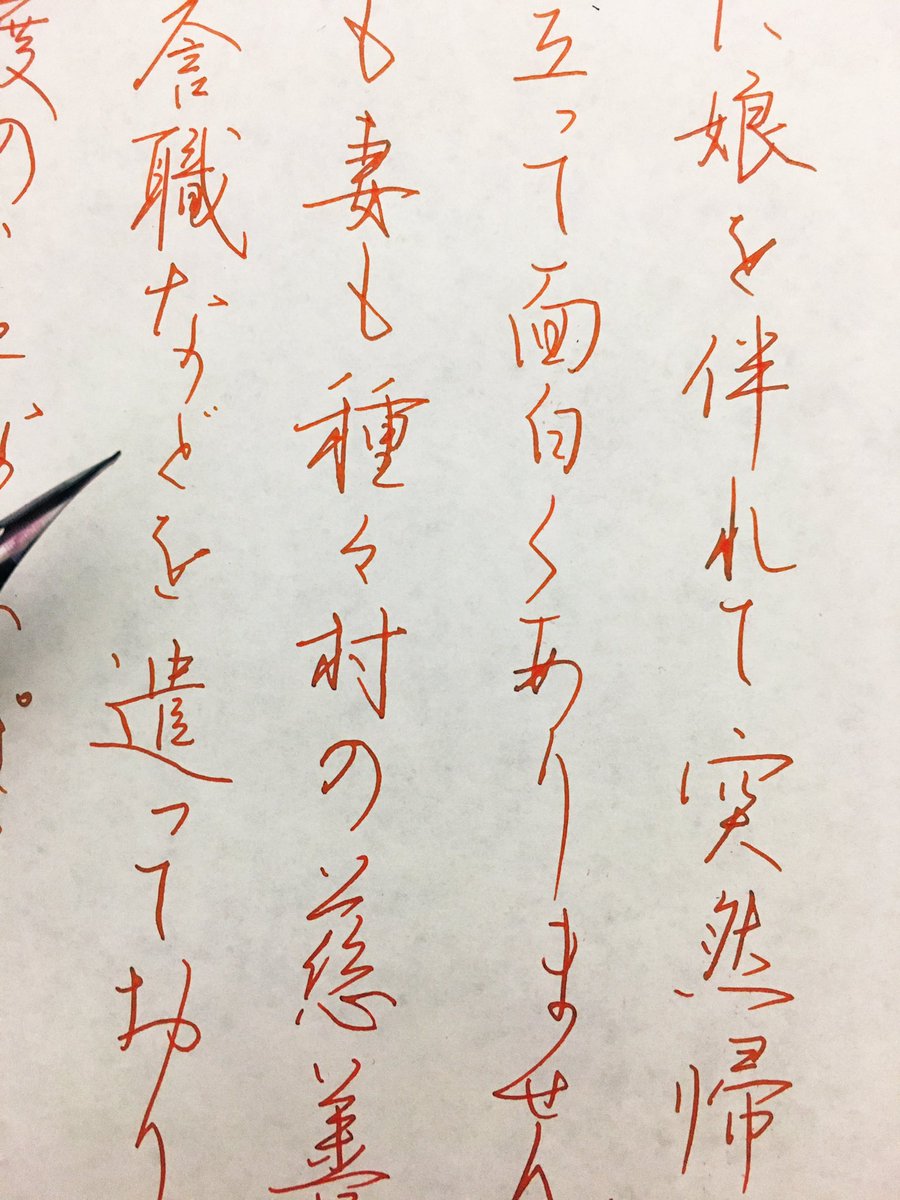 に娘を伴れて突然帰
互って面白くありません
も妻も種々村の慈善
誉職などを遣っており
度の